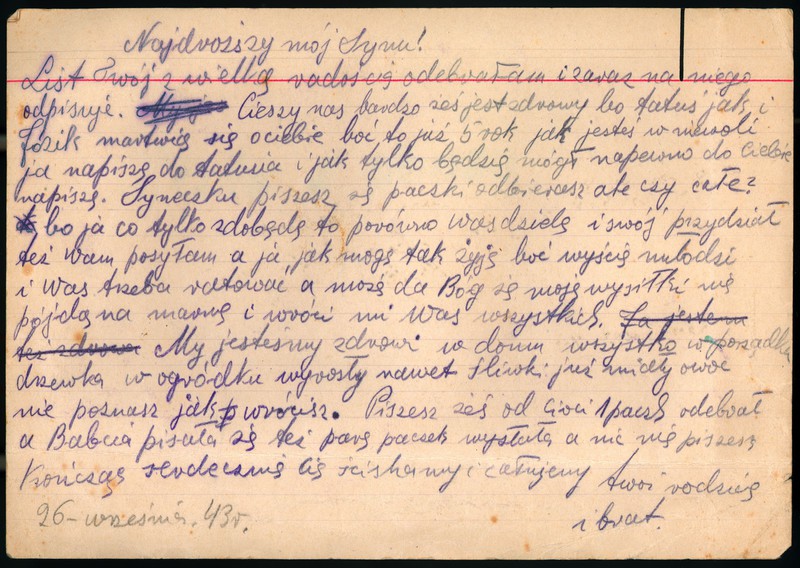 Najdroższy mój Synu!
List Twój z wielką radością odebrałam i zaraz na niego
odpisuję. Cieszy nas bardzo żeś jest zdrowy bo tatuś jak i
Józik martwię się o ciebie boć to już 5 rok jak jesteś w niewoli
ja napiszę do tatusia i jak tylko będzię mógł napewno do Ciebie
napiszę. Syneczku piszesz żę paczki odbierasz ale czy całe?
bo ja co tylko zdobędę to porówno was dzielę i swój przydział
też wam posyłam a ja jak mogę tak żyję boć wyścię młodzi
i Was trzeba ratować a możę da Bog żę moję wysiłki nię
pójdą na marnę i wróci mi Was wszystkich. Ja jestem
też zdrowa My jesteśmy zdrowi w domu wszystko w porządku
drzewka w ogródku wyrosły nawet śliwki już miały owoc
nie poznasz jak wrócisz. Piszesz żeś od Cioci 1 paczk odebrał
a Babcia pisała żę też parę paczek wysłała a nic nię piszesz
Kończąc serdecznię Cię ściskamy i całujemy twoi rodzicę
i brat.
26-września. 43r.